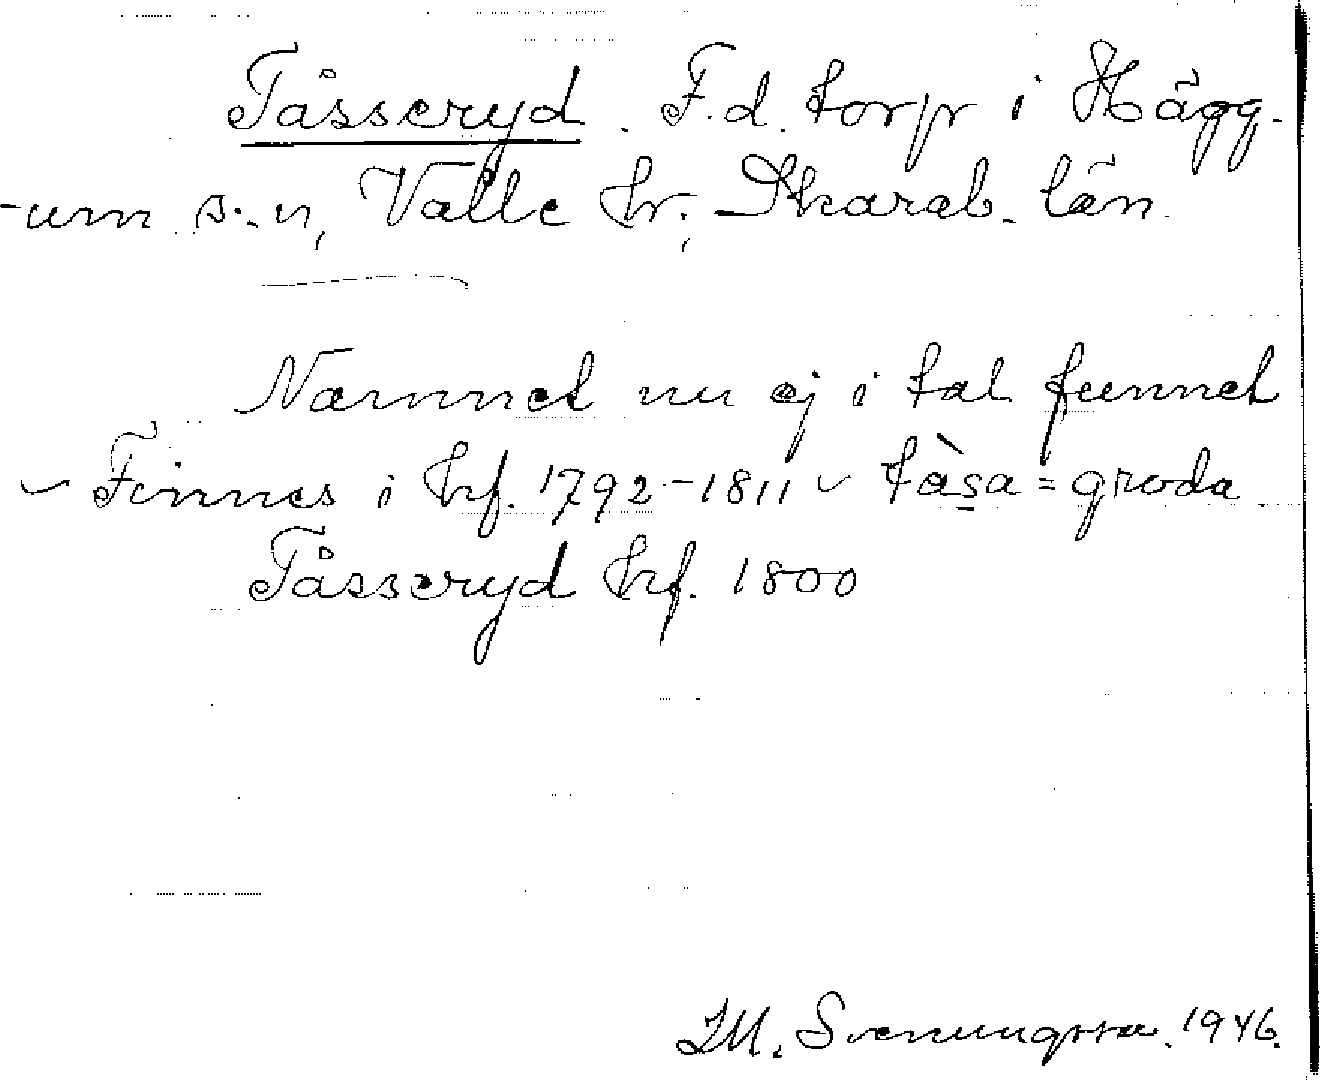 Tåsseryd. F.d. torp i Hägg-
-um s:n, Valle hr; Skarab. län.
Namnet nu ej i tal funnet
Finnes i hf. 1792-1811 tàsa = groda
Tåsseryd hf. 1800
M. Svenungsson. 1946.